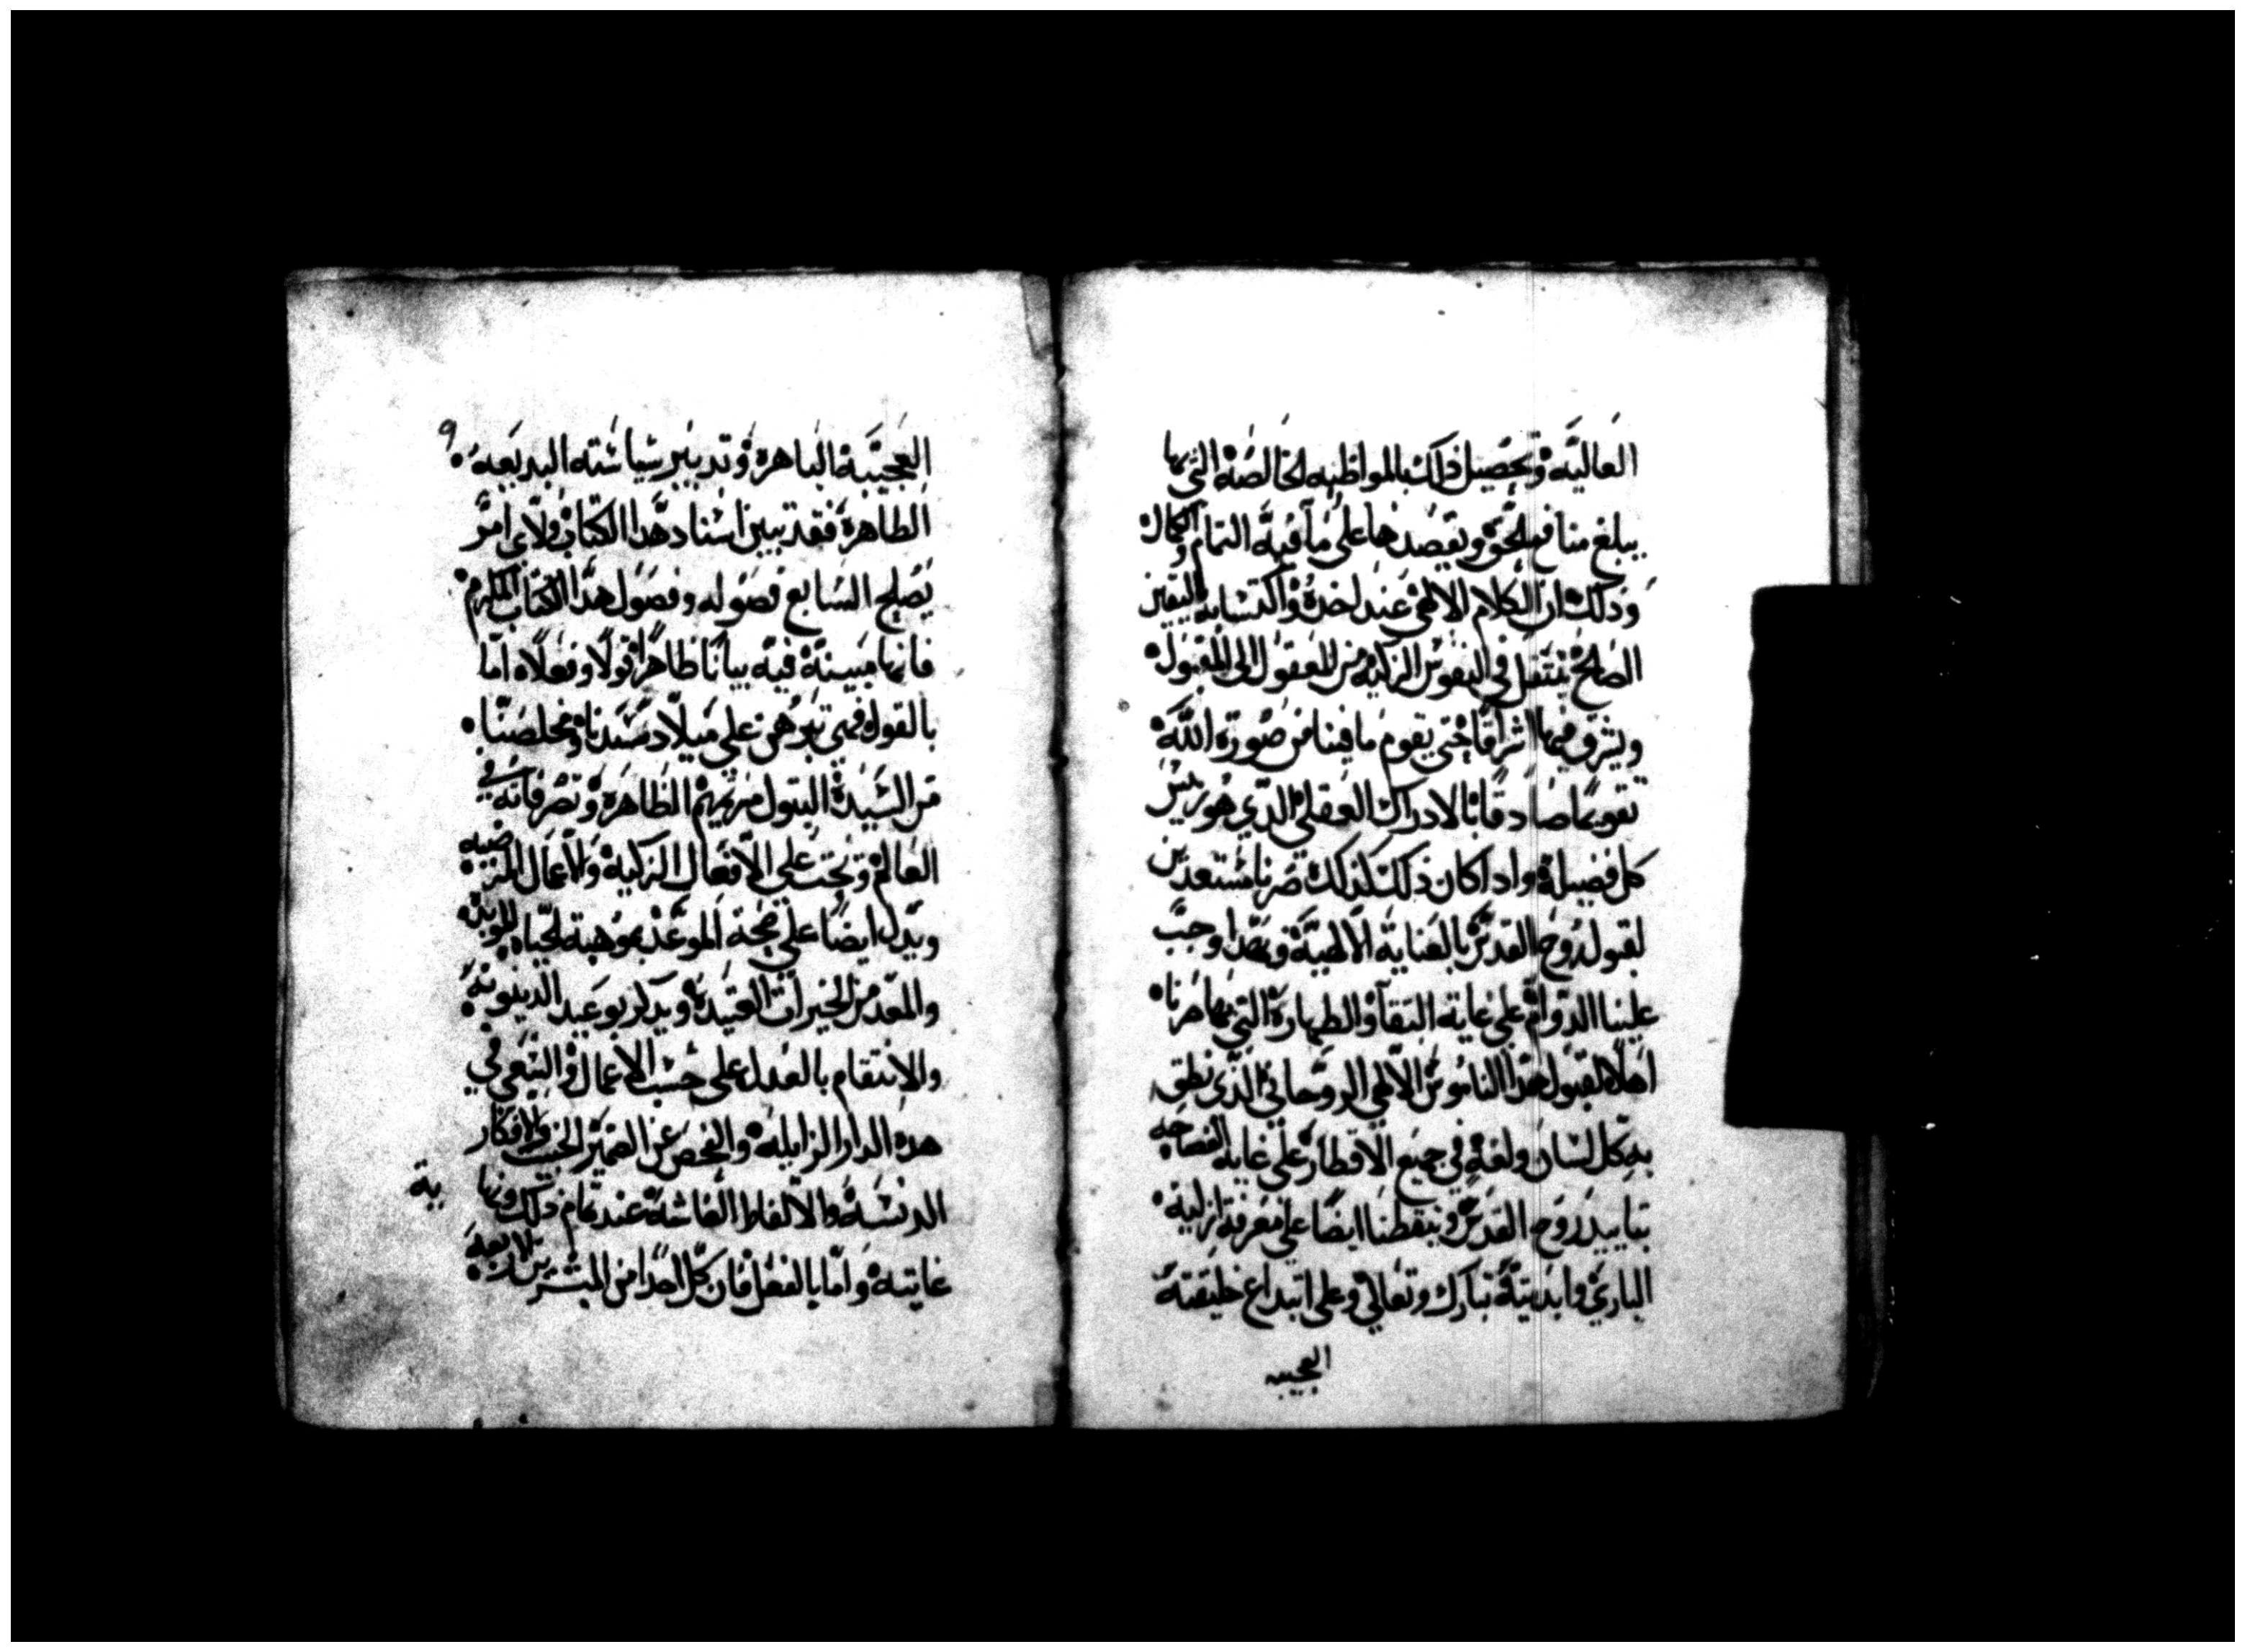 العاليه وتحصيل ذلك بالمواظبه الخالصه التي بها
يبلغ منافع الحق ويقصدها على ما فيه التمام والكمال
وذلك ان الكلام الالهي عند اخده واكتسابه اليقين
الصالح ينتقل في النفوس الزكيه من المعقول الى المقبول
ويشرق فيها اشراقا حتي يقوم ما فينا من صورة الله
تقويما صادقا بالادراك العقلي الدي هو ريس
كل فضيلة وادا كان ذلك كذلك صرنا مستعدين
لقبول روح القدس بالعناية الالهية وبهدا وجب
علينا الدوام على غاية النقا والطهارة التي بها صرنا
اهلا لقبول هدا الناموس الالهي الروحاني الذي نطق
به كل لسان ولغة في جميع الاقطار على غاية الفصاحه
بتاييد روح القدس وتيقظنا ايضا علي معرفة ازلية
الباري وابديتة تبارك وتعالي وعلى ابتداع خليقتة
العجيبه
٩
العجيبة الباهرة وتدبير سياسته البديعه
الطاهرة فقد تبين اسناد هدا الكتاب ولاي امر
يصلح السابع فصوله وفصول هدا الكتاب المكرم
فانها مبينة فيه بيانا ظاهرا قولا وفعلا اما
بالقول فهي تبرهن علي ميلاد سيدنا ومخلصنا
من السيدة البتول مرتمريم الطاهرة وتصرفاته في
العالم وتحت علي الافعال الزكية والاعمال المرضيه
وتدل ايضا علي صحة الموعد بموهبة الحياه الموبده
والمعد من الخيرات العتيدة ويدكر بوعيد الدينونة
والانتقام بالعدل على حسب الاعمال والسعي في
هده الدار الزايلة والفحص عن الضمير الخبث والافكار
الدنسة والالفاظ الفاشة عند تمام ذلك ونهاية
غايتة واما بالفعل فان كل احدا من المبشرين الاربعة